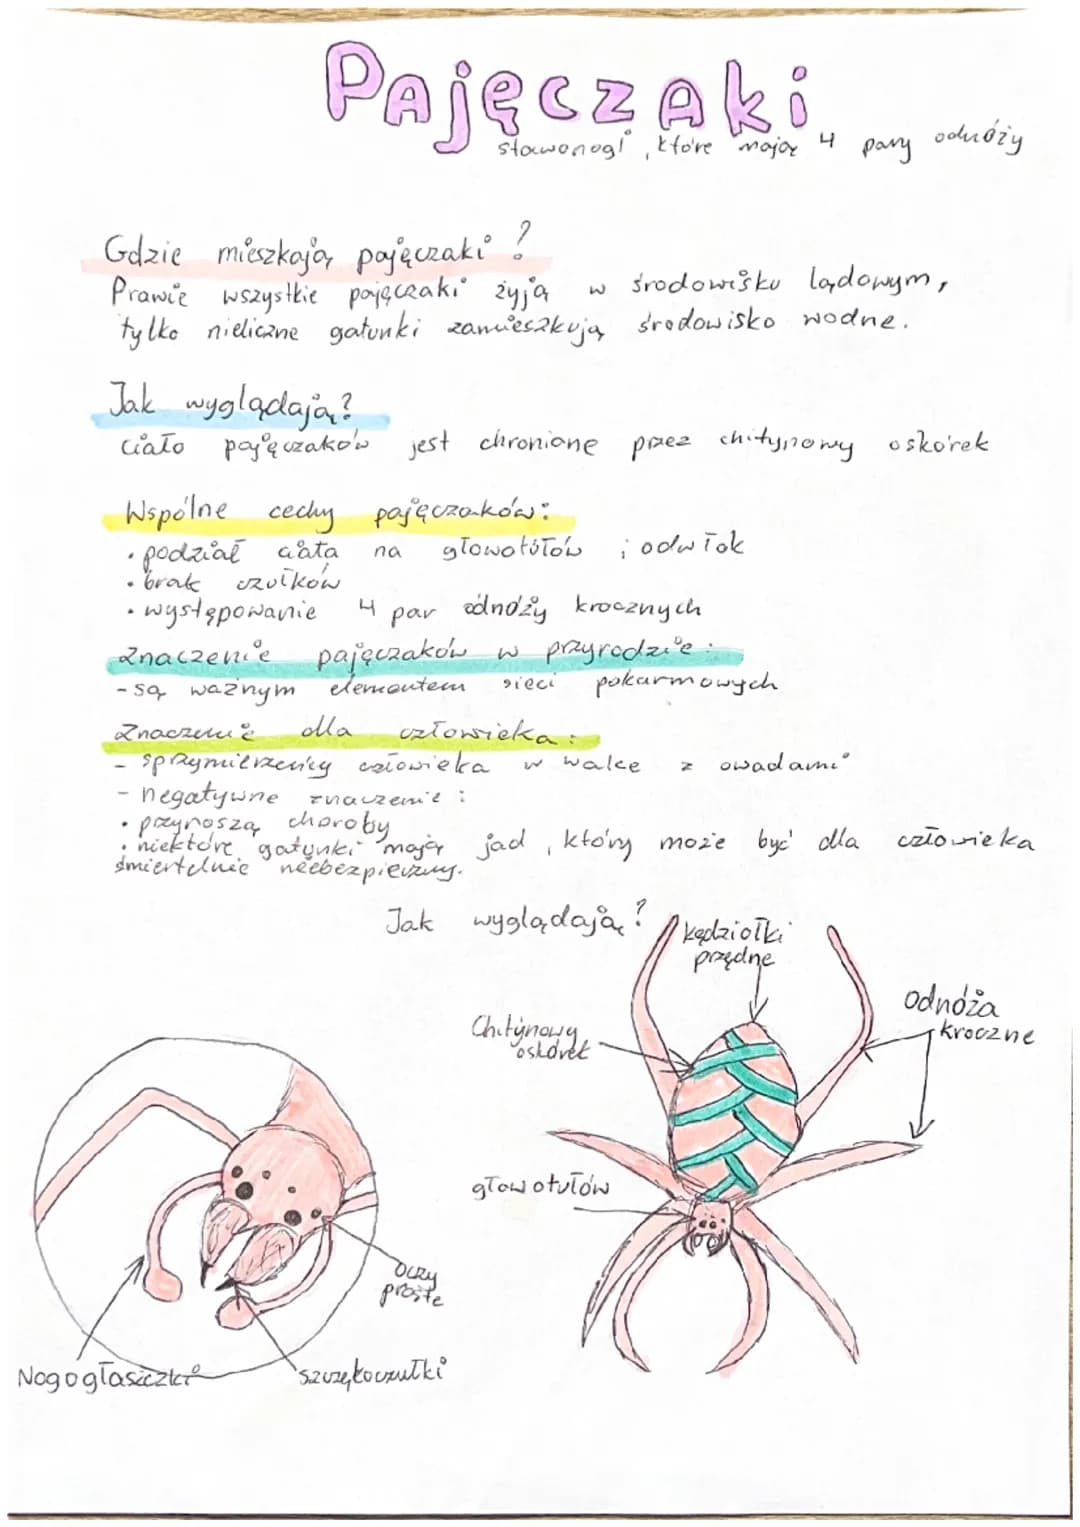 Pajęczaki
stawonogi, które mają 4 pary odnóży
Gdzie mieszkają pajęczaki?
Prawie wszystkie pajęczaki żyją w środowisku lądowym,
tylko nieliczne gatunki zamieszkują środowisko wodne.
Jak wyglądają?
Ciało pajęczaków jest chronione przez chitynowy oskórek
Wspólne cechy pajęczaków:
• podział ciała na głowotułów i odwłok
• brak czułków
• występowanie 4 par odnóży krocznych
Znaczenie pajęczaków w przyrodzie:
- są ważnym elementem sieci pokarmowych
Znaczenie dla człowieka:
- sprzymierzeńcy człowieka w walce z owadami
- negatywne znaczenie:
• przynoszą choroby
• niektóre gatunki mają jad, który może być dla człowieka
śmiertelnie niebezpieczny.
Jak wyglądają?
kądziołki
przędne
Chitynowy
oskórek
Odnóża
kroczne
głowotułów
Oczy
proste
Nogogłaszczki
szczękoczułki